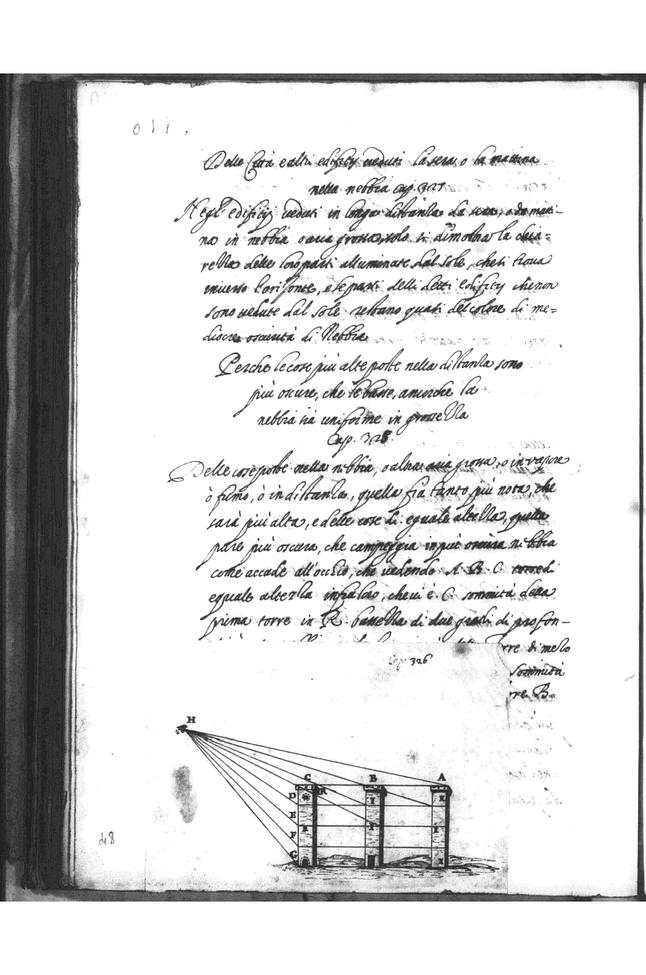 011.
Delle Città e altri edifitij ueduti la sera, o la mattina
nella nebbia cap. 327
Negl'edifitij ueduti in longa distantia da sera, o da mati=
na in nebbia o aria grossa, solo si dimostra la chia=
rezza delle loro parti alluminate dal sole, che si troua
inuerso l'orizonte, e le parti delli detti edifitij che non
sono uedute dal sole restano quasi del colore di me=
diocre oscurità di Nebbia
Perche le cose più alte poste nella distanza sono
più oscure, che le basse, ancorche la
nebbia sia uniforme in grossezza
Cap. 328
Delle cose poste nella nebbia, o altra aria grossa, o in vapore
ò fumo, ò in distanza, quella fia tanto più nota, che
sarà più alta, e delle cose di eguale altezza, quella
pare più oscura, che campeggia in più oscura nebbia
come accade all'occhio, che uedendo A. B. C torre di
equale altezza infra loro, che ui è C sommità della
prima torre in R. bassezza di due gradi di profon=
rre di mezo
Cap. 326
sommità
rre B.
H
C B A
D R
E
F
G
48